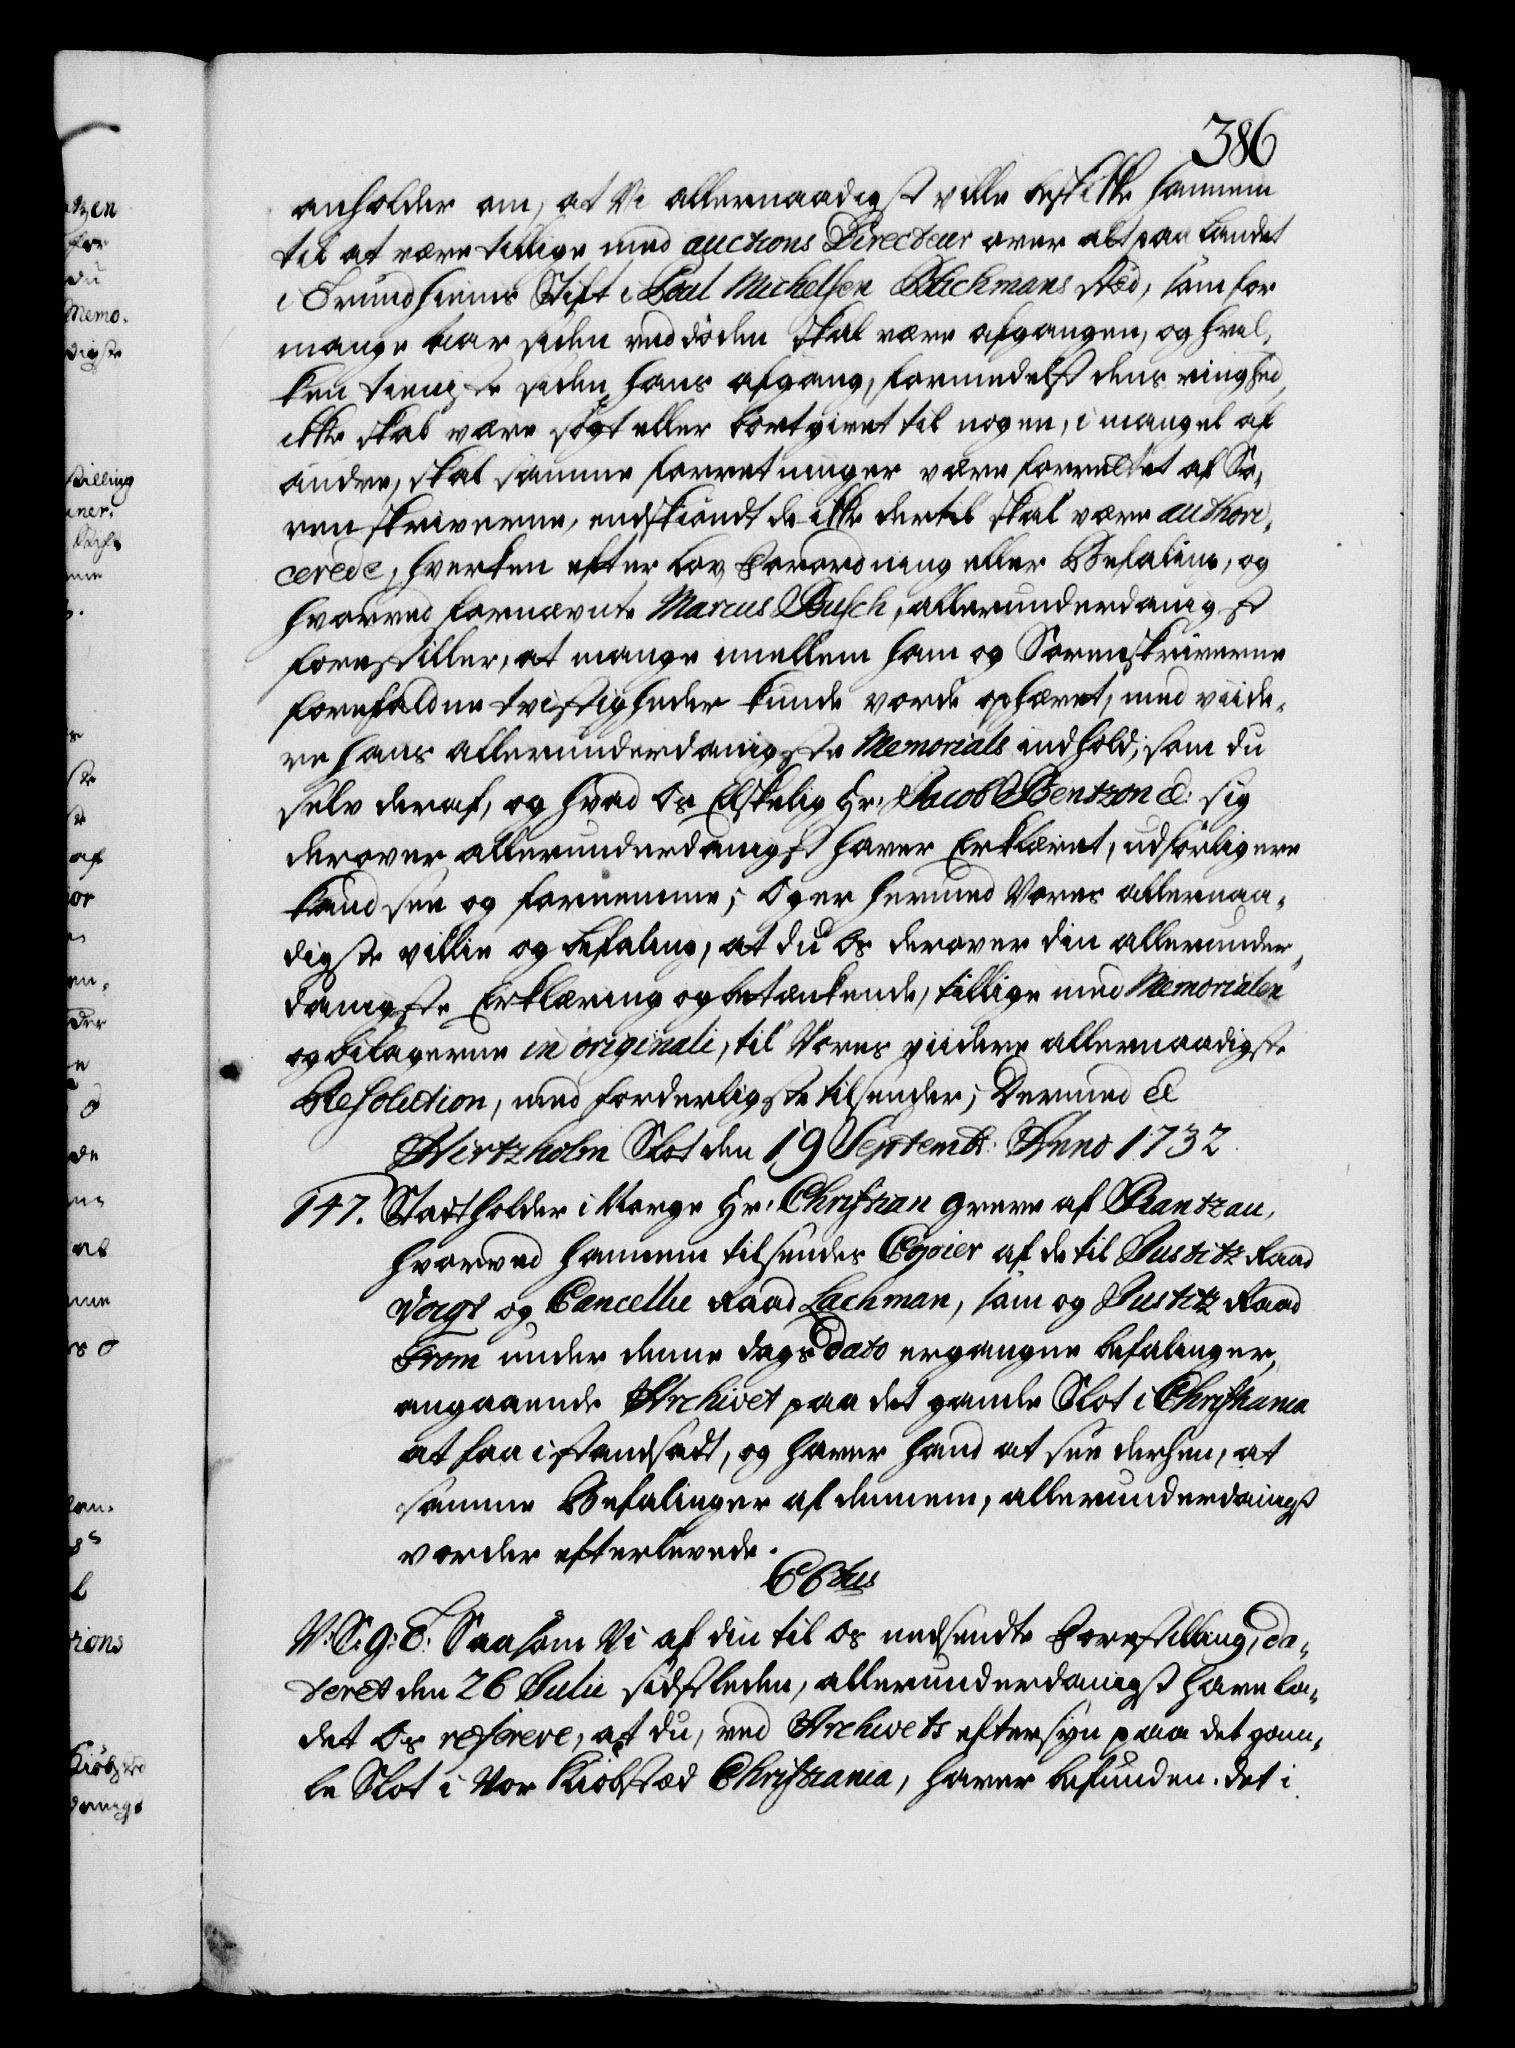 386
anholder om, at Vi allernaadigst ville beskikke hannem
til at være tillige med auctions Directeur over alt paa Landet
i Trundhiems Stift i Poul Michelsen Blichmans stæd, som for
mange aar siden ved döden skal være afgangen, og hvel-
ken tieniste siden hans afgang, formedelst dens ringhed,
ikke skal være sögt eller bortgivet til nogen, i mangel af
andre, skal samme forretninger være forrettet af So-
renskriverne, endskiöndt de ikke dertil skal være authori-
cerede, hverken efter Lov, Forordning eller Befaling, og
hvorved fornævnte Marcus Busch, allerunderdanigst
forestiller, at mange imellem ham og Sorenskriverne
forefaldne tvistigheder kunde vorde ophævet, med viide-
re hans allerunderdanigste Memorials indhold, som du
selv deraf, og hvad Os Elskelig Hr. Jacob Bentzon &: sig
derover allerunderdanigst haver Erklæret, udförligere
kand see og fornemme; Og er hermed Vores allernaa-
digste villie og befaling, at du Os derover din allerunder-
danigste Erklæring og betænkende, tillige med Memorialen
og bilagerne in originali, til Vores viidere allernaadigste
Resolution, med forderligste tilsender; Dermed &
Hirtzholm Slot den 19 Septembr: Anno 1732.
147. Stadtholder i Norge Hr. Christian Greve af Rantzau,
hvorved hannem tilsendes Copier af de til Justitz Raad
Voigt og Cancellie Raad Lachman, som og Justitz Raad
From under denne dags Dato ergangne befalinger,
angaaende Archivet paa det gamle Slot i Christiania
at faa i standsadt, og haver hand at see derhen, at
samme Befalinger af dennem, allerunderdanigst
vorder efterlevede.
C 6tus
V: S: G: T: Saasom Vi af din til Os nedsendte Forestilling, da-
teret den 26 Julii sidstleden, allerunderdanigst have la-
det Os referere, at du, ved Archivets eftersyn paa det gam-
le Slot i Vor Kiöbstæd Christiania, haver befunden det i